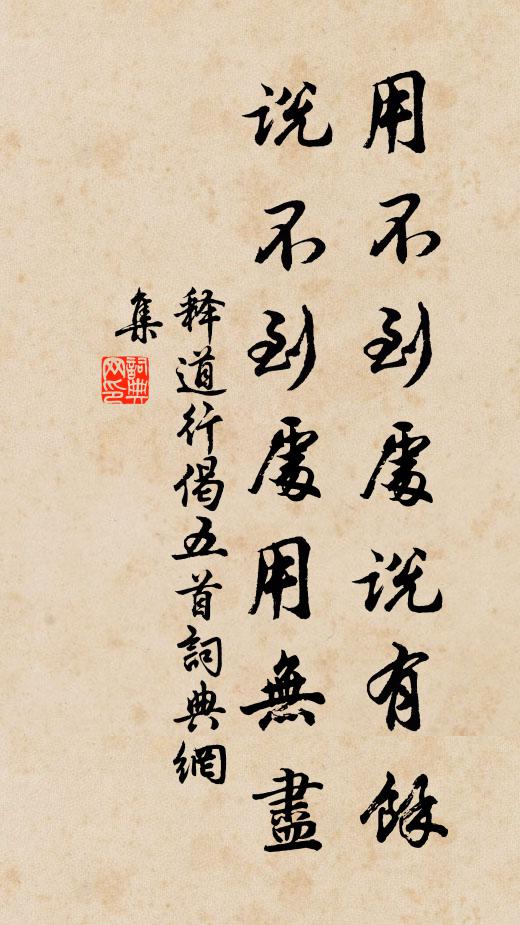 用不到處说有餘
说不到處用無盡
释道行偈五首詞典網
集
詞典
网印